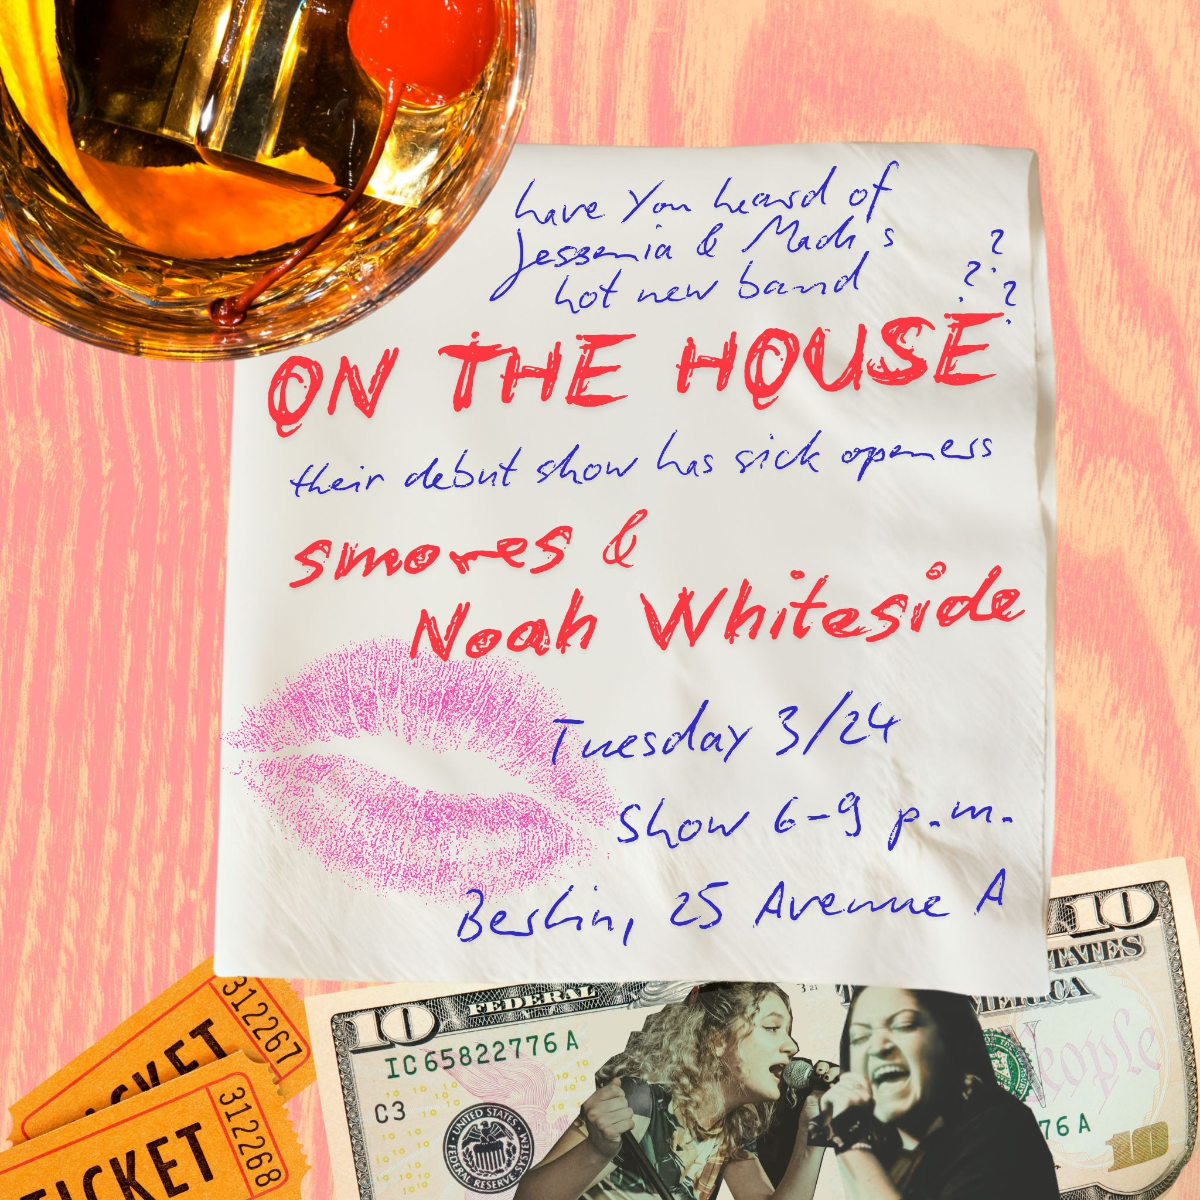 have you heard of
Jessenia & Madi's
hot new band
? ? ?
ON THE HOUSE
their debut show has sick openers
smores &
Noah Whiteside
Tuesday 3/24
Show 6-9 p.m.
Berlin, 25 Avenue A
312267
TICKET
312268
TICKET
10
FEDERAL
IC65822776A
C3
UNITED STATES
FEDERAL RESERVE SYSTEM
10
STATES
AMERICA
People
76A
10